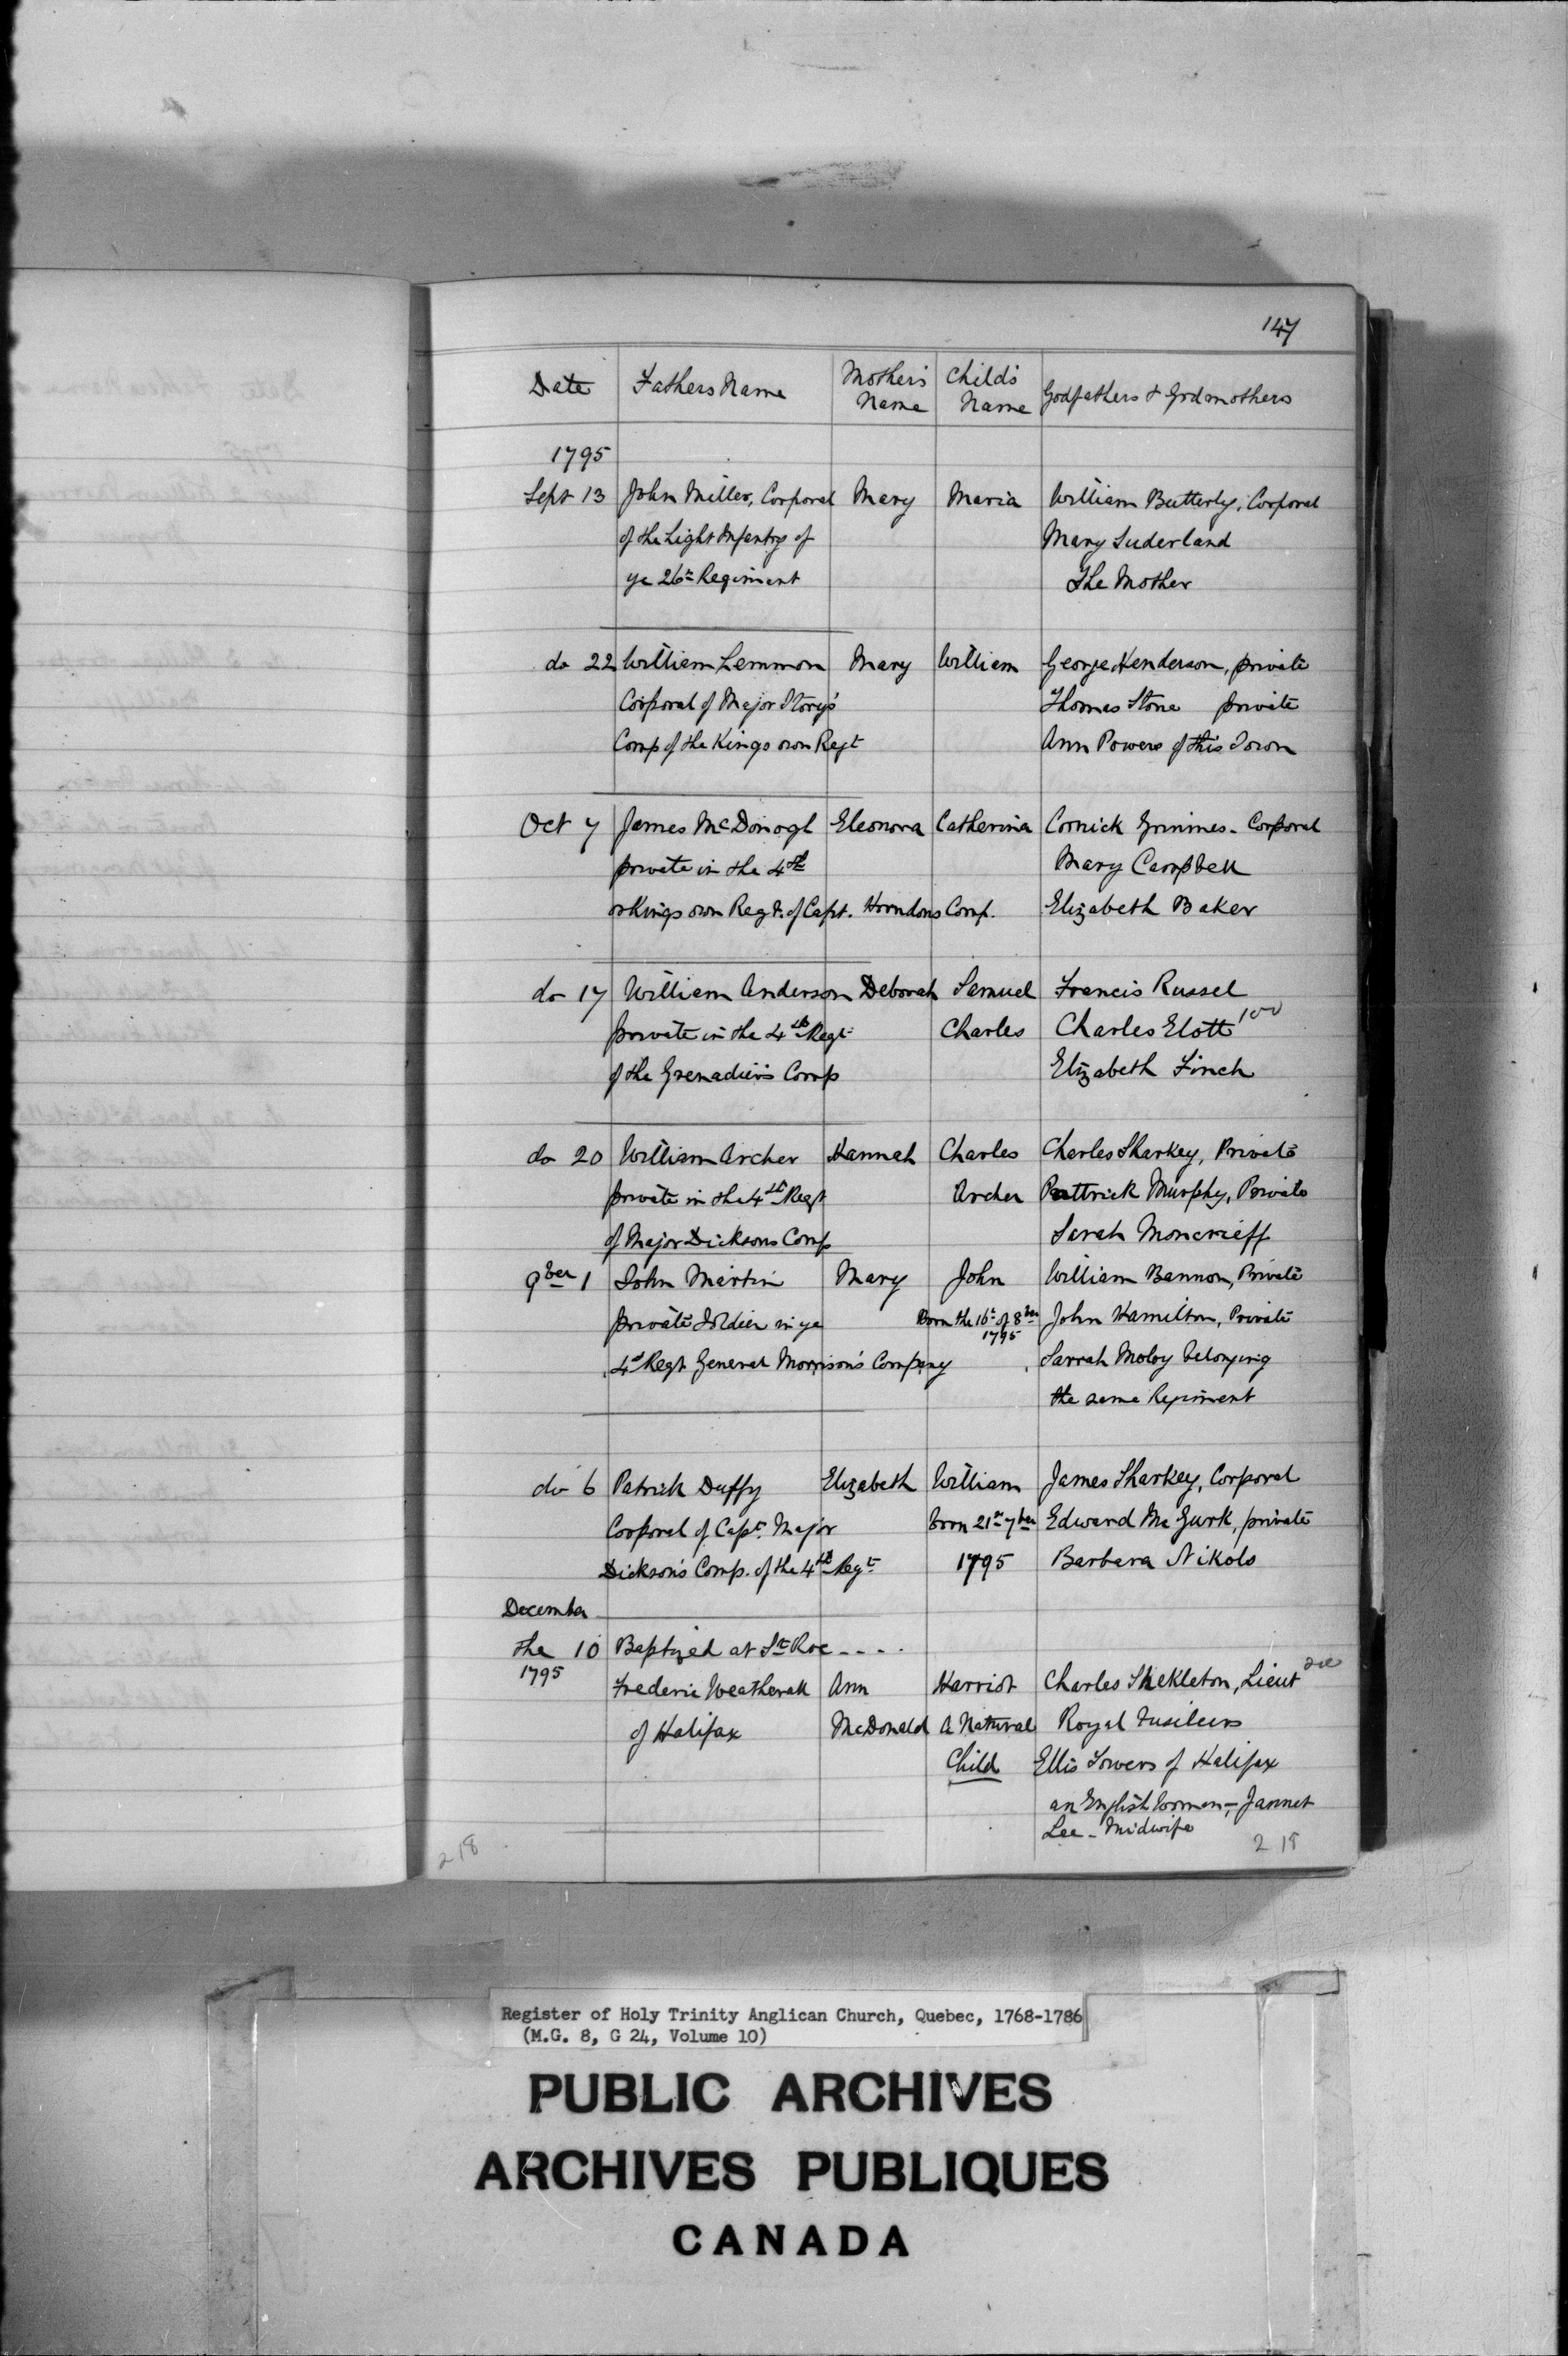 147
Date Fathers Name Mother's Name Child's Name Godfathers & Godmothers
1795
Sept 13 John Miller, Corporal Mary Maria William Butterly, Corporal
of the Light Infantry of Mary Suderland
ye 26th Regiment The Mother
do 22 William Lemmon Mary William George Henderson, private
Corporal of Major Story's Thomas Stone private
Comp of the Kings own Regt Ann Powers of this Town
Oct 7 James McDonogh Eleonora Catherina Cornick Grimmes - Corporal
private in the 4th Mary Campbell
or Kings own Regt. of Capt. Horndons Comp. Elizabeth Baker
do 17 William Anderson Deborah Samuel Francis Russel
private in the 4th Regt Charles Charles Elott
of the Grenadier's Comp Elizabeth Finch
do 20 William Archer Hannah Charles Charles Sharkey, Private
private in the 4th Regt Archer Pattrick Murphy, Private
of Major Dicksons Comp Sarah Moncrieff
9ber 1 John Martin Mary John William Bannon, Private
private Soldier in ye Born the 16th of 8ber 1795 John Hamilton, Private
4th Regt General Morrison's Company Sarrah Moloy belonging
the same Regiment
do 6 Patrick Duffy Elizabeth William James Sharkey, Corporal
Corporal of Capt. Major born 21st 7ber Edward McGurk, private
Dickson's Comp. of the 4th Regt 1795 Barbara Nikols
December
the 10 Baptized at St Roc - - - -
1795 Frederic Weatherall Ann Harriot Charles Shekleton, Lieut
of Halifax McDonald A Natural Royal Fusileers
Child Ellis Towers of Halifax
an English woman -, Jannet
Lee - Midwife
218 218
Register of Holy Trinity Anglican Church, Quebec, 1768-1786
(M.G. 8, G 24, Volume 10)
PUBLIC ARCHIVES
ARCHIVES PUBLIQUES
CANADA